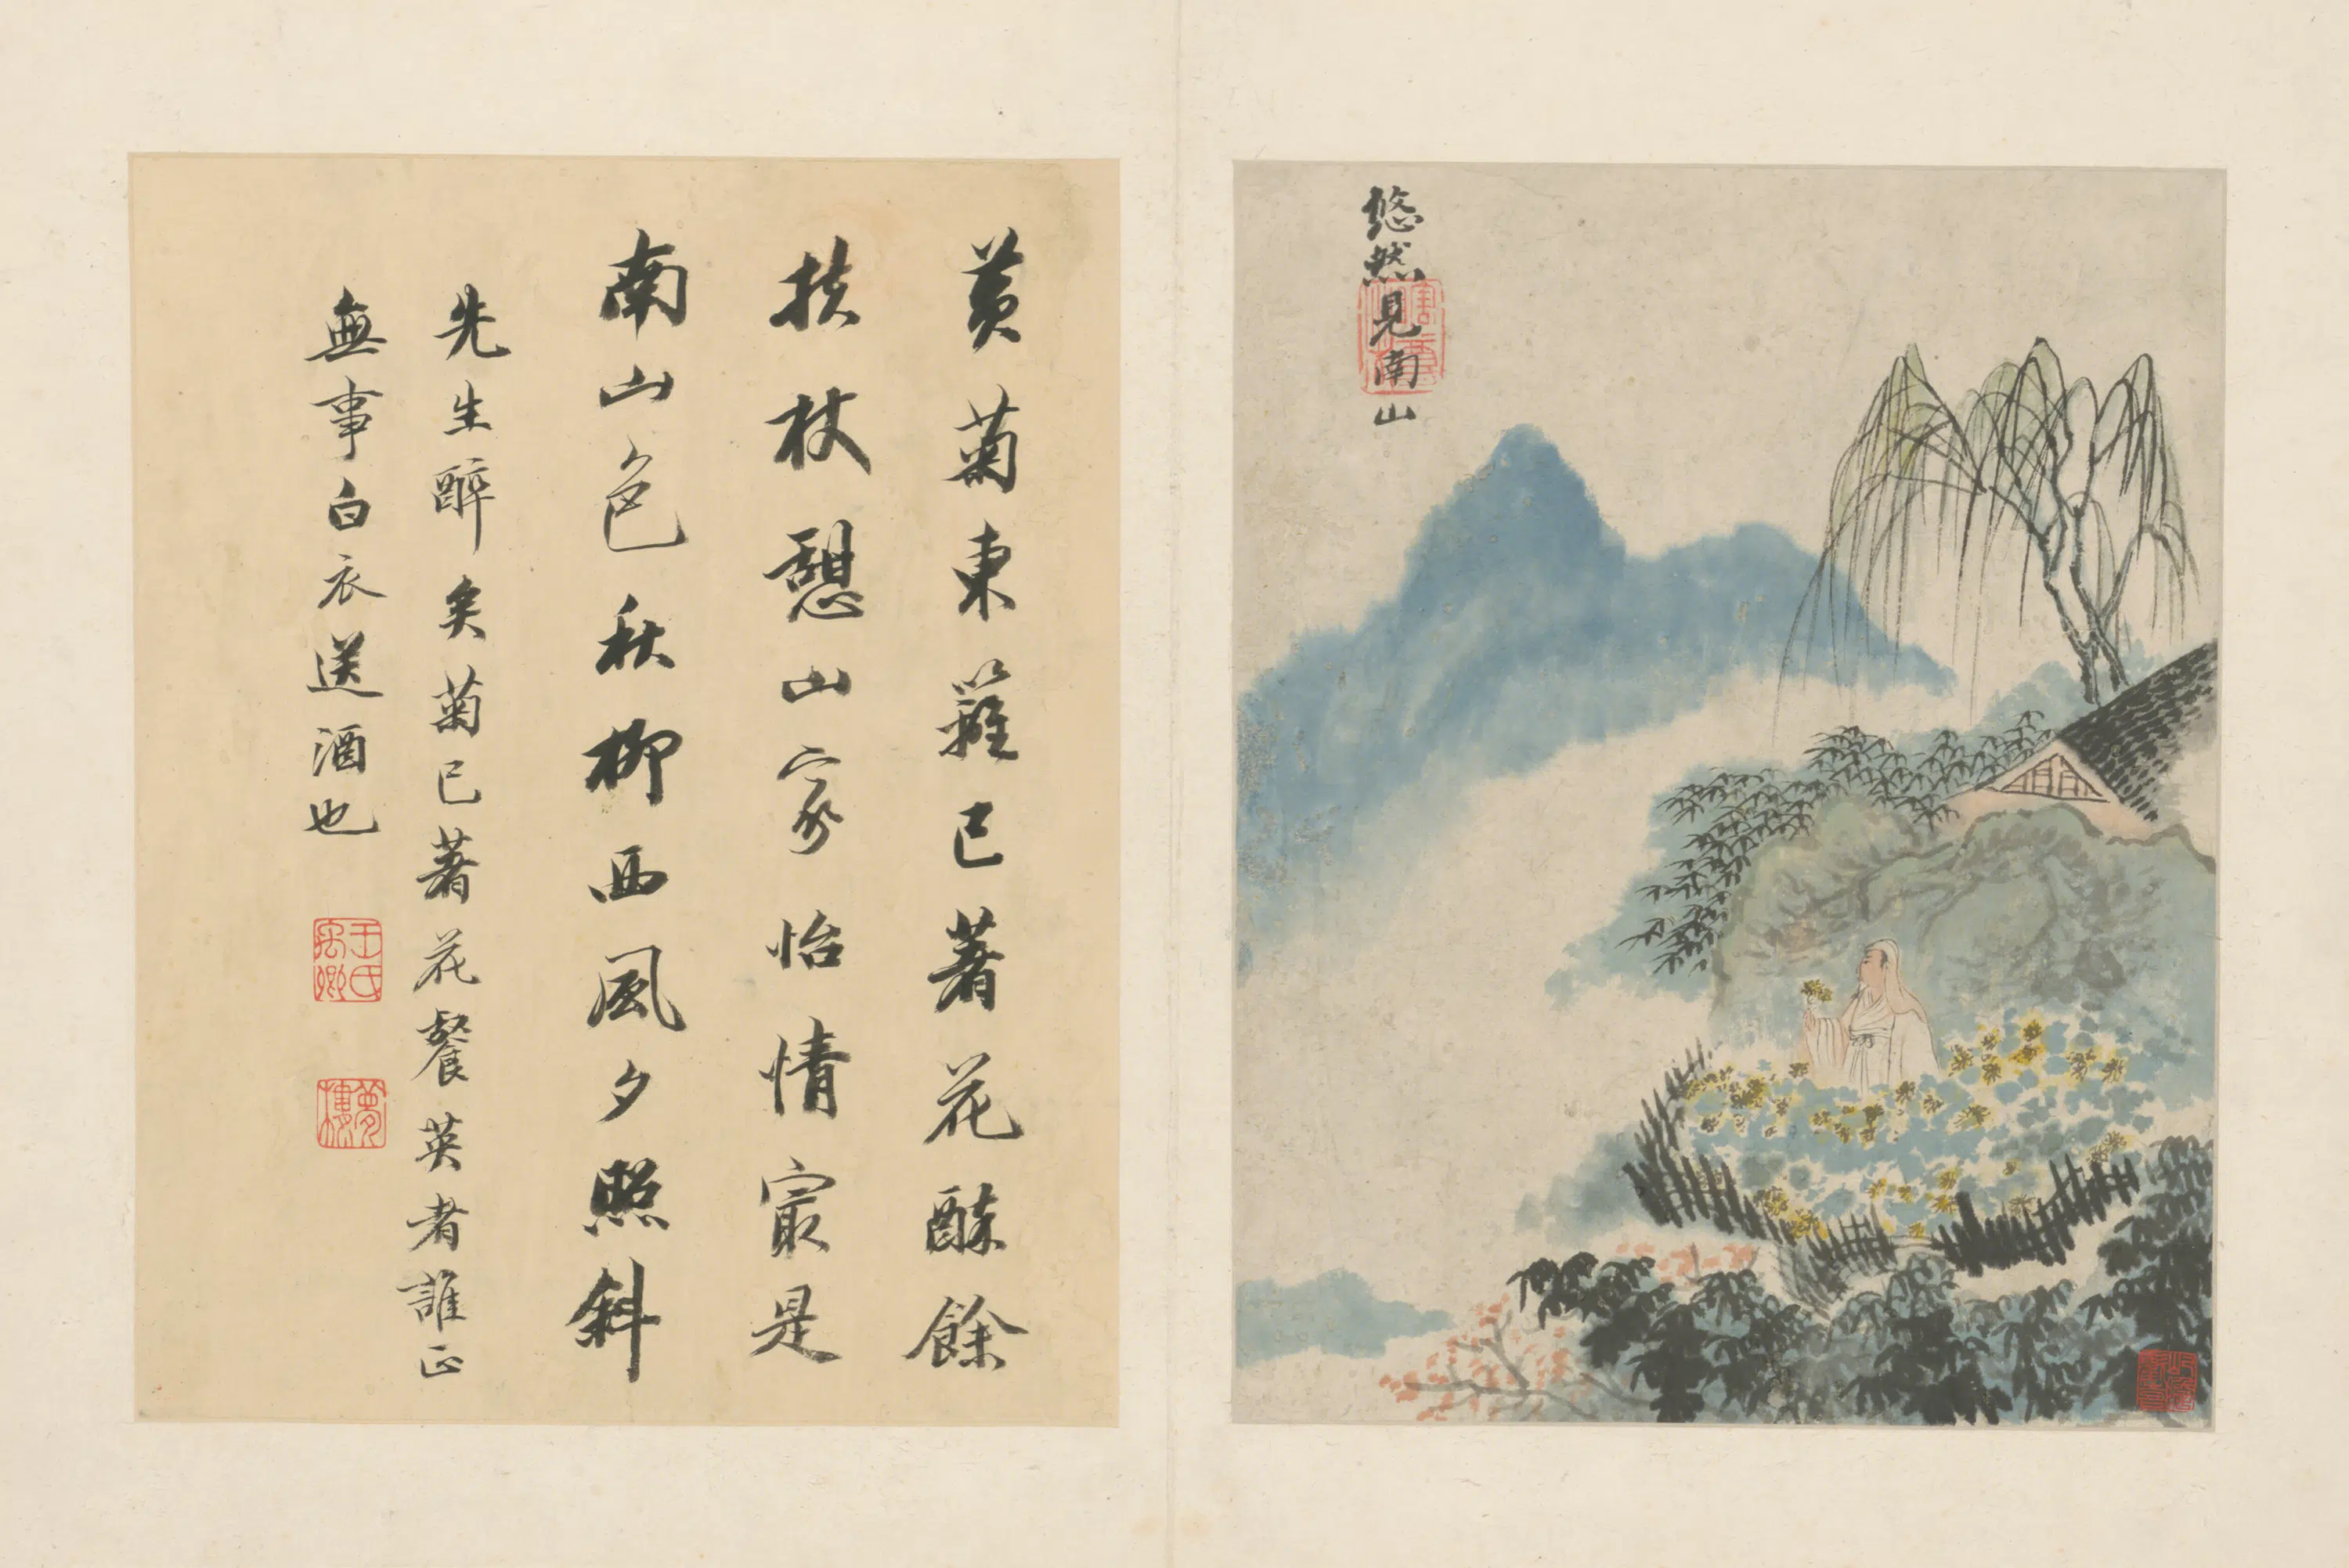 悠然見南山
黃菊東籬已著花酥餘
扶杖憩山家怡情㝡是
南山色秋柳西風夕照斜
先生醉矣菊已著花餐英者誰正
無事白衣送酒也
王氏禹卿
夢樓